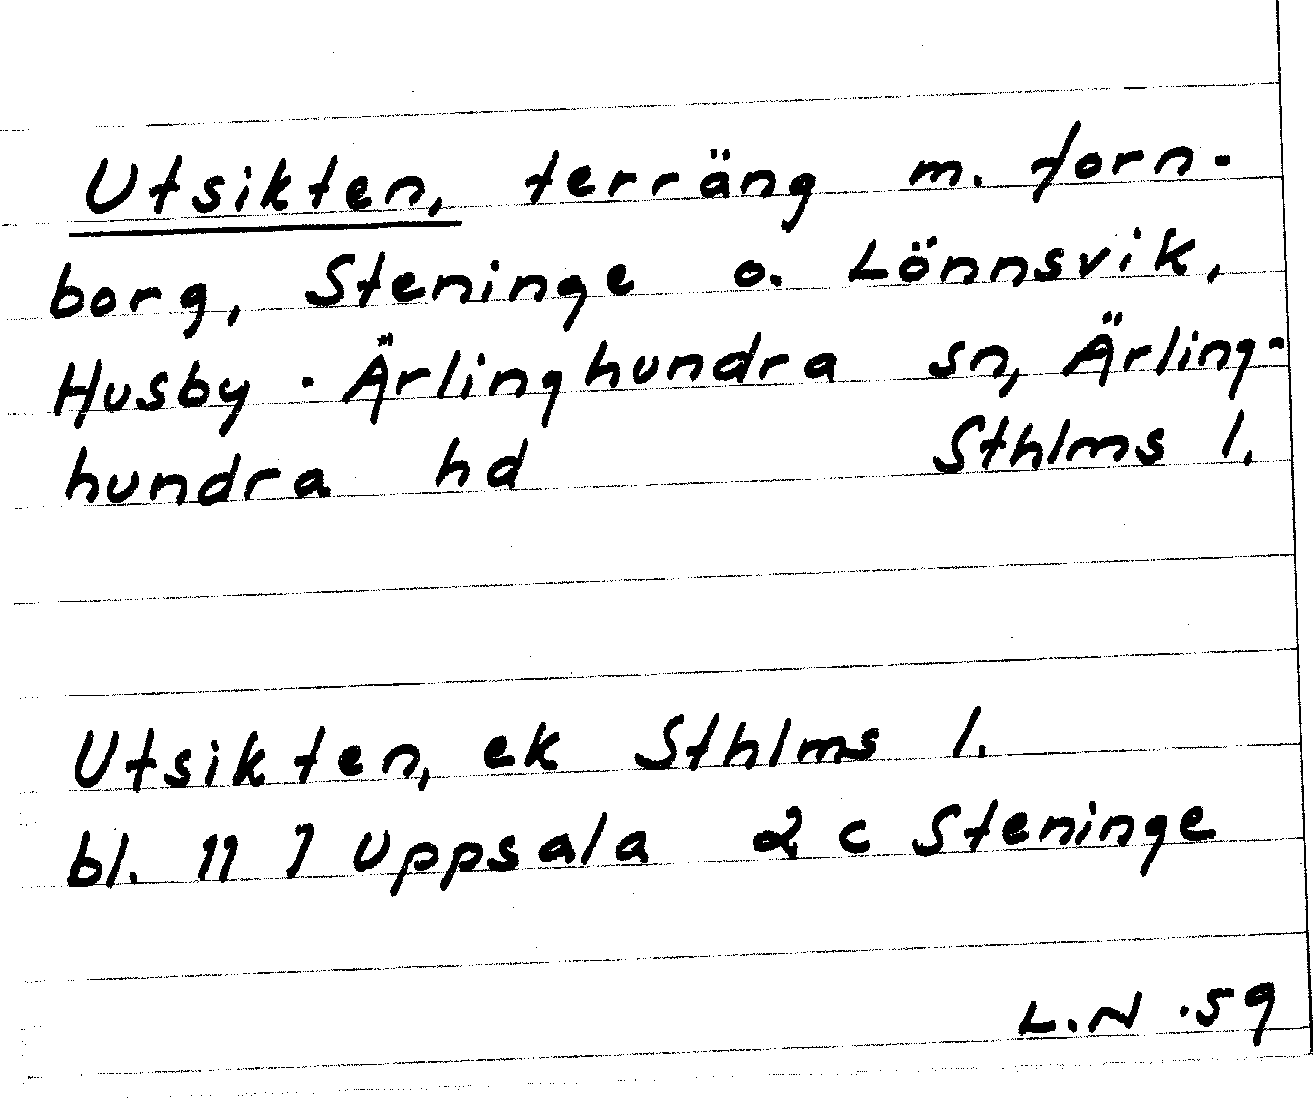 Utsikten, terräng m. forn-
borg, Steninge o. Lönnsvik,
Husby-Ärlinghundra sn, Ärling-
hundra hd Sthlms l.
Utsikten, ek Sthlms l.
bl. 11 I Uppsala 2 c Steninge
L.N .59